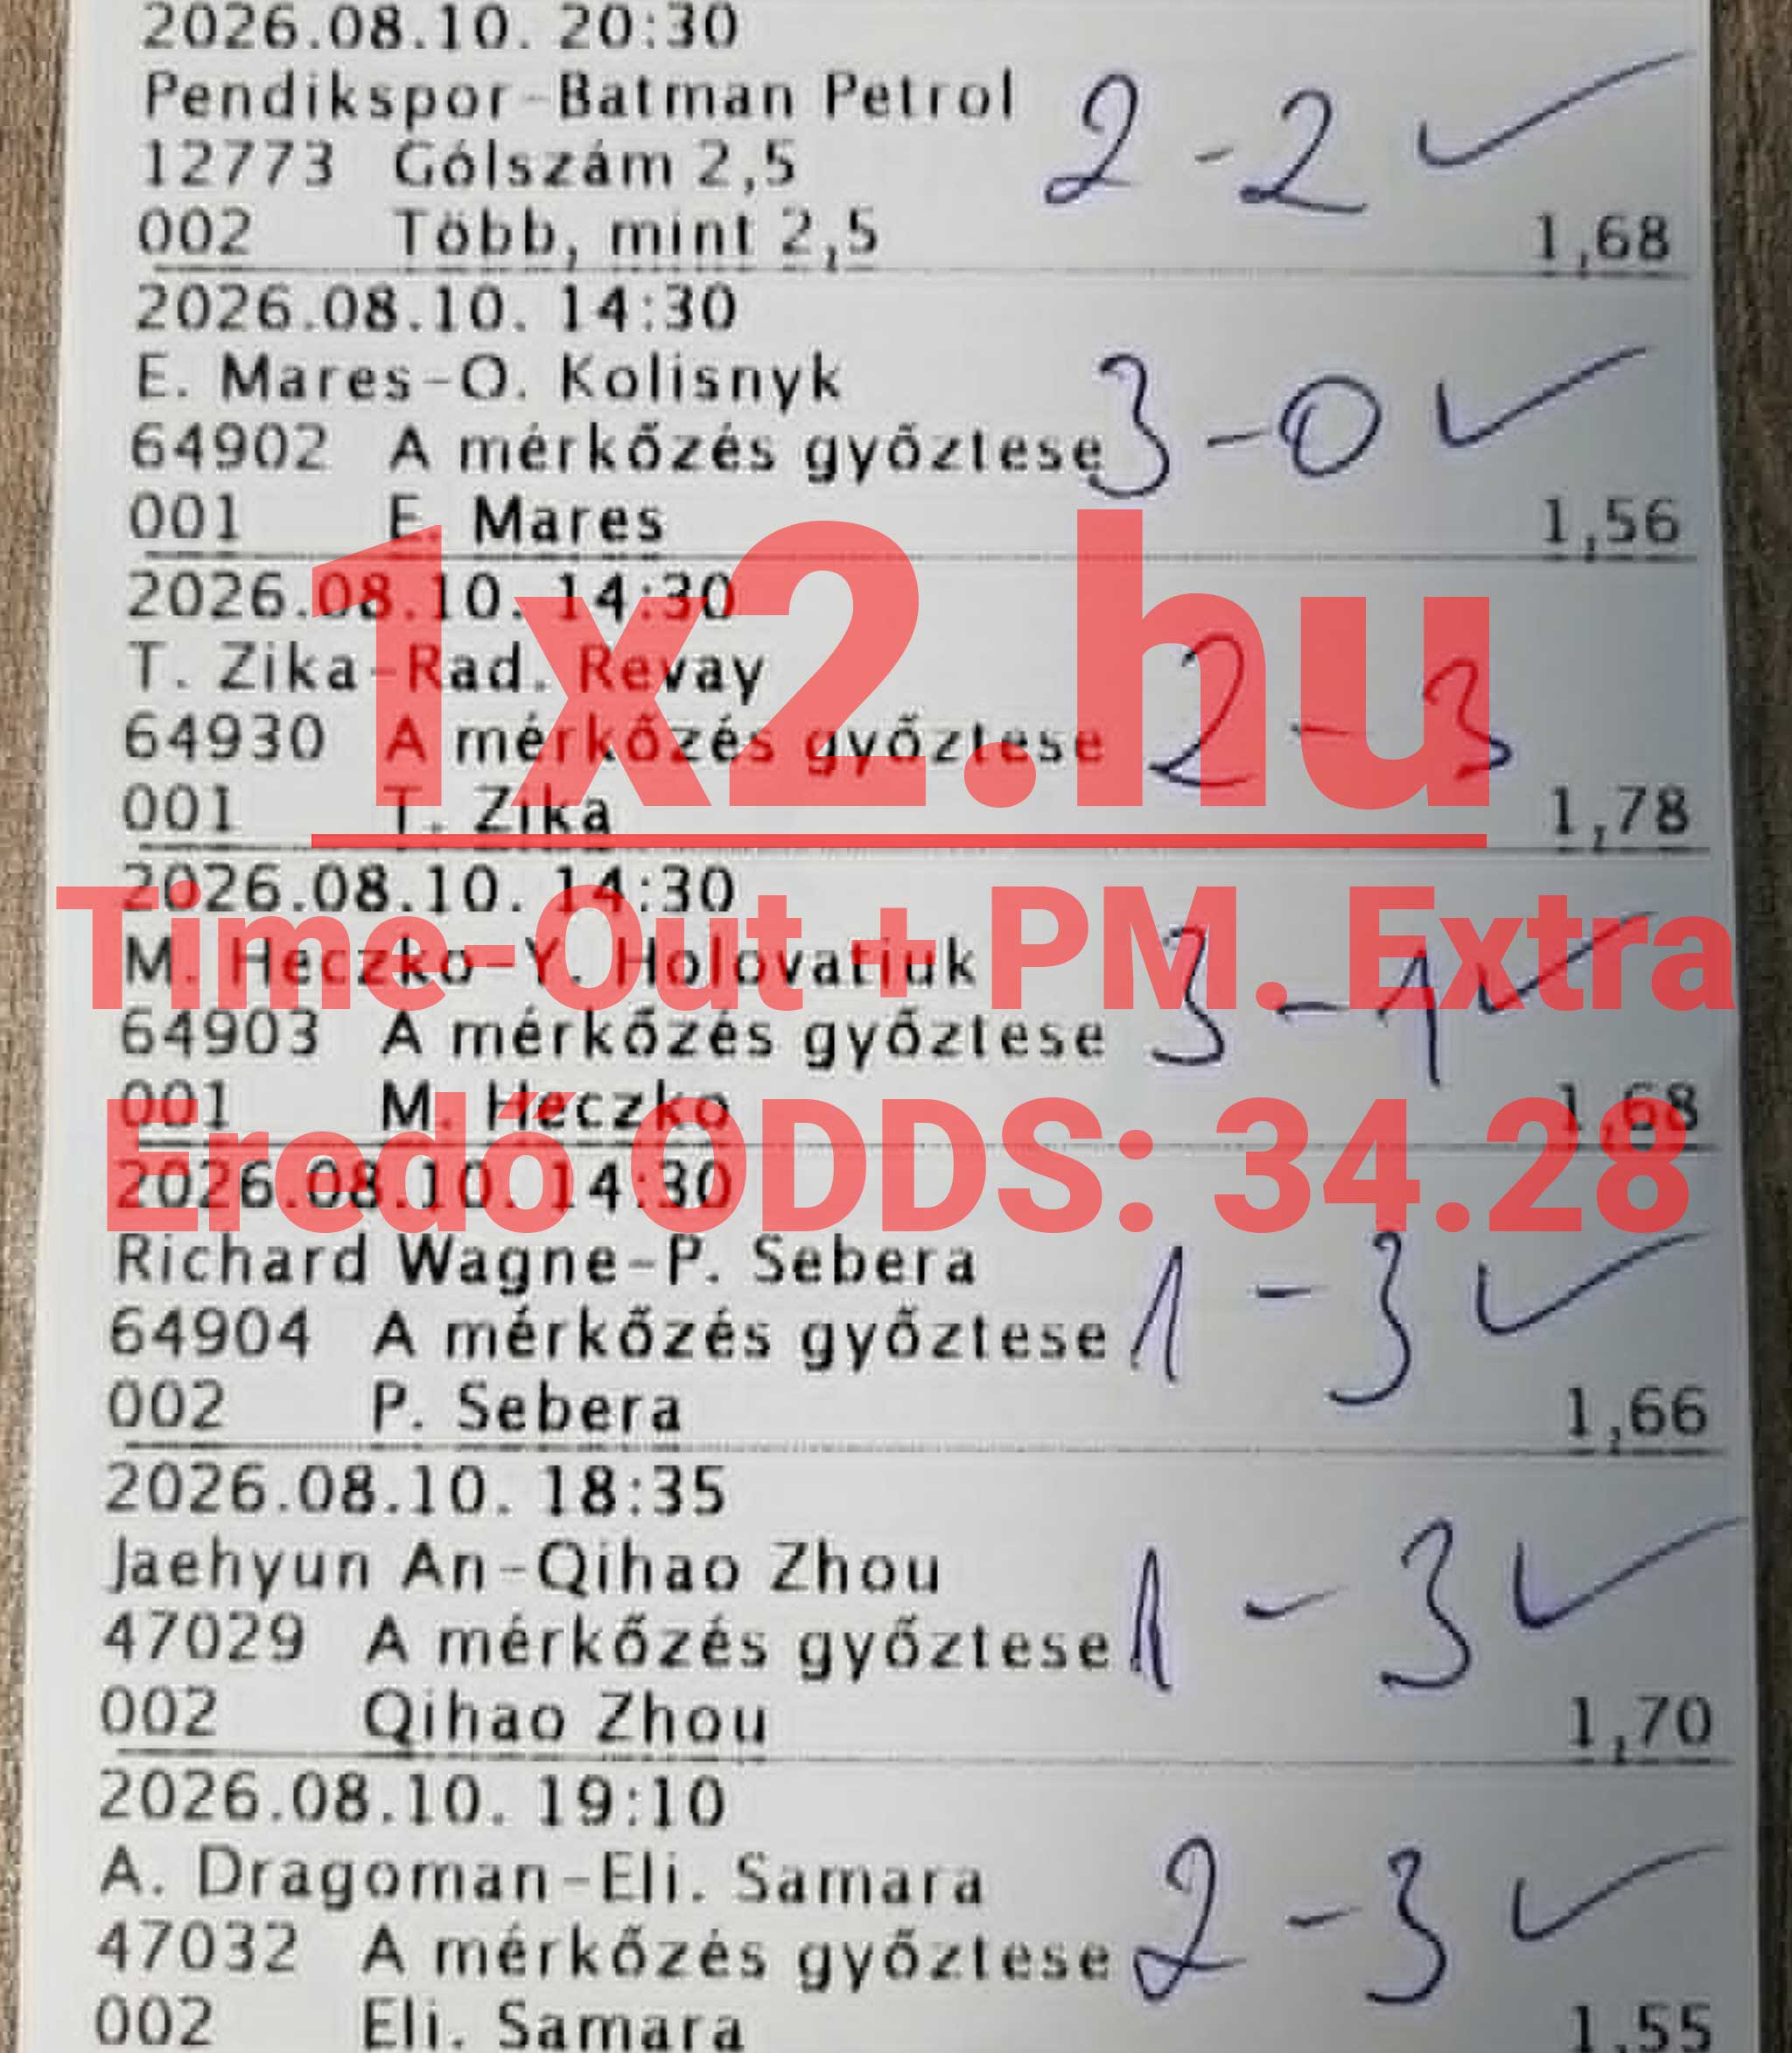 2026.08.10. 20:30
Pendikspor-Batman Petrol
2-2 ✓
12773 Gólszám 2,5
002 Több, mint 2,5 1,68
2026.08.10. 14:30
E. Mares-O. Kolisnyk
3-0 ✓
64902 A mérkőzés győztese
001 E. Mares 1,56
1x2.hu
2026.08.10. 14:30
T. Zika-Rad. Revay
2-3
64930 A mérkőzés győztese
001 T. Zika 1,78
2026.08.10. 14:30
Time-Out + PM. Extra
M. Heczko-Y. Holovatiuk
3-1 ✓
64903 A mérkőzés győztese
001 M. Heczko 1,68
Eredő ODDS: 34.28
2026.08.10. 14:30
Richard Wagne-P. Sebera
1-3 ✓
64904 A mérkőzés győztese
002 P. Sebera 1,66
2026.08.10. 18:35
Jaehyun An-Qihao Zhou
1-3 ✓
47029 A mérkőzés győztese
002 Qihao Zhou 1,70
2026.08.10. 19:10
A. Dragoman-Eli. Samara
2-3 ✓
47032 A mérkőzés győztese
002 Eli. Samara 1,55